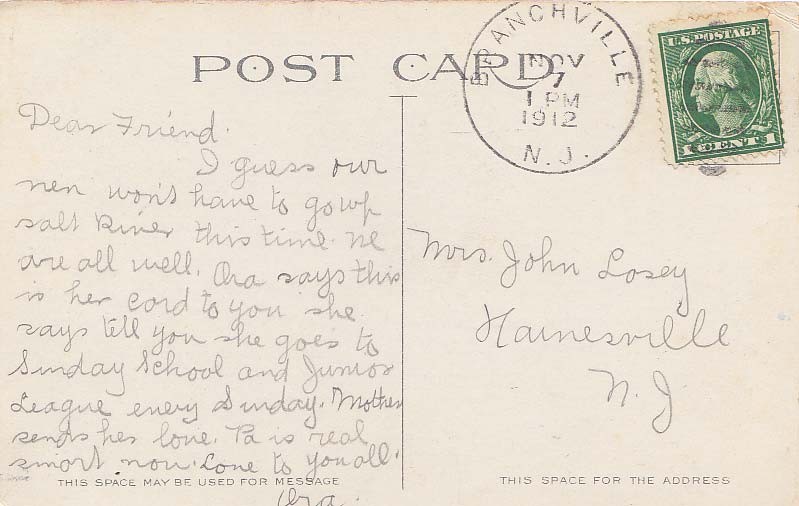 POST CARD
BRANCHVILLE
NOV
7
1 PM
1912
N. J.
U.S. POSTAGE
1 CENT 1
Dear Friend.
I guess our
men won't have to go up
salt River this time. We
are all well. Ora says this
is her card to you she
says tell you she goes to
Sunday School and Junior
League every Sunday. Mother
sends her love. Pa is real
smart now. Love to you all.
Ora.
Mrs. John Losey
Hainesville
N. J
THIS SPACE MAY BE USED FOR MESSAGE
THIS SPACE FOR THE ADDRESS